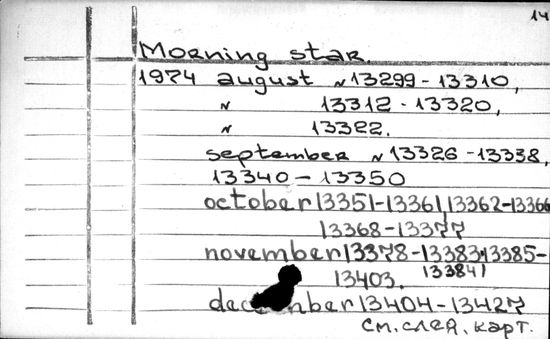 14
Morning star.
1974 august N 13299-13310,
N 13312-13320,
N 13322.
september N 13326-13338,
13340-13350
october 13351-13361, 13362-13366
13368-13377
november 13378-13383, 13385-
13384,
13403.
13404-13427
См. след. карт.